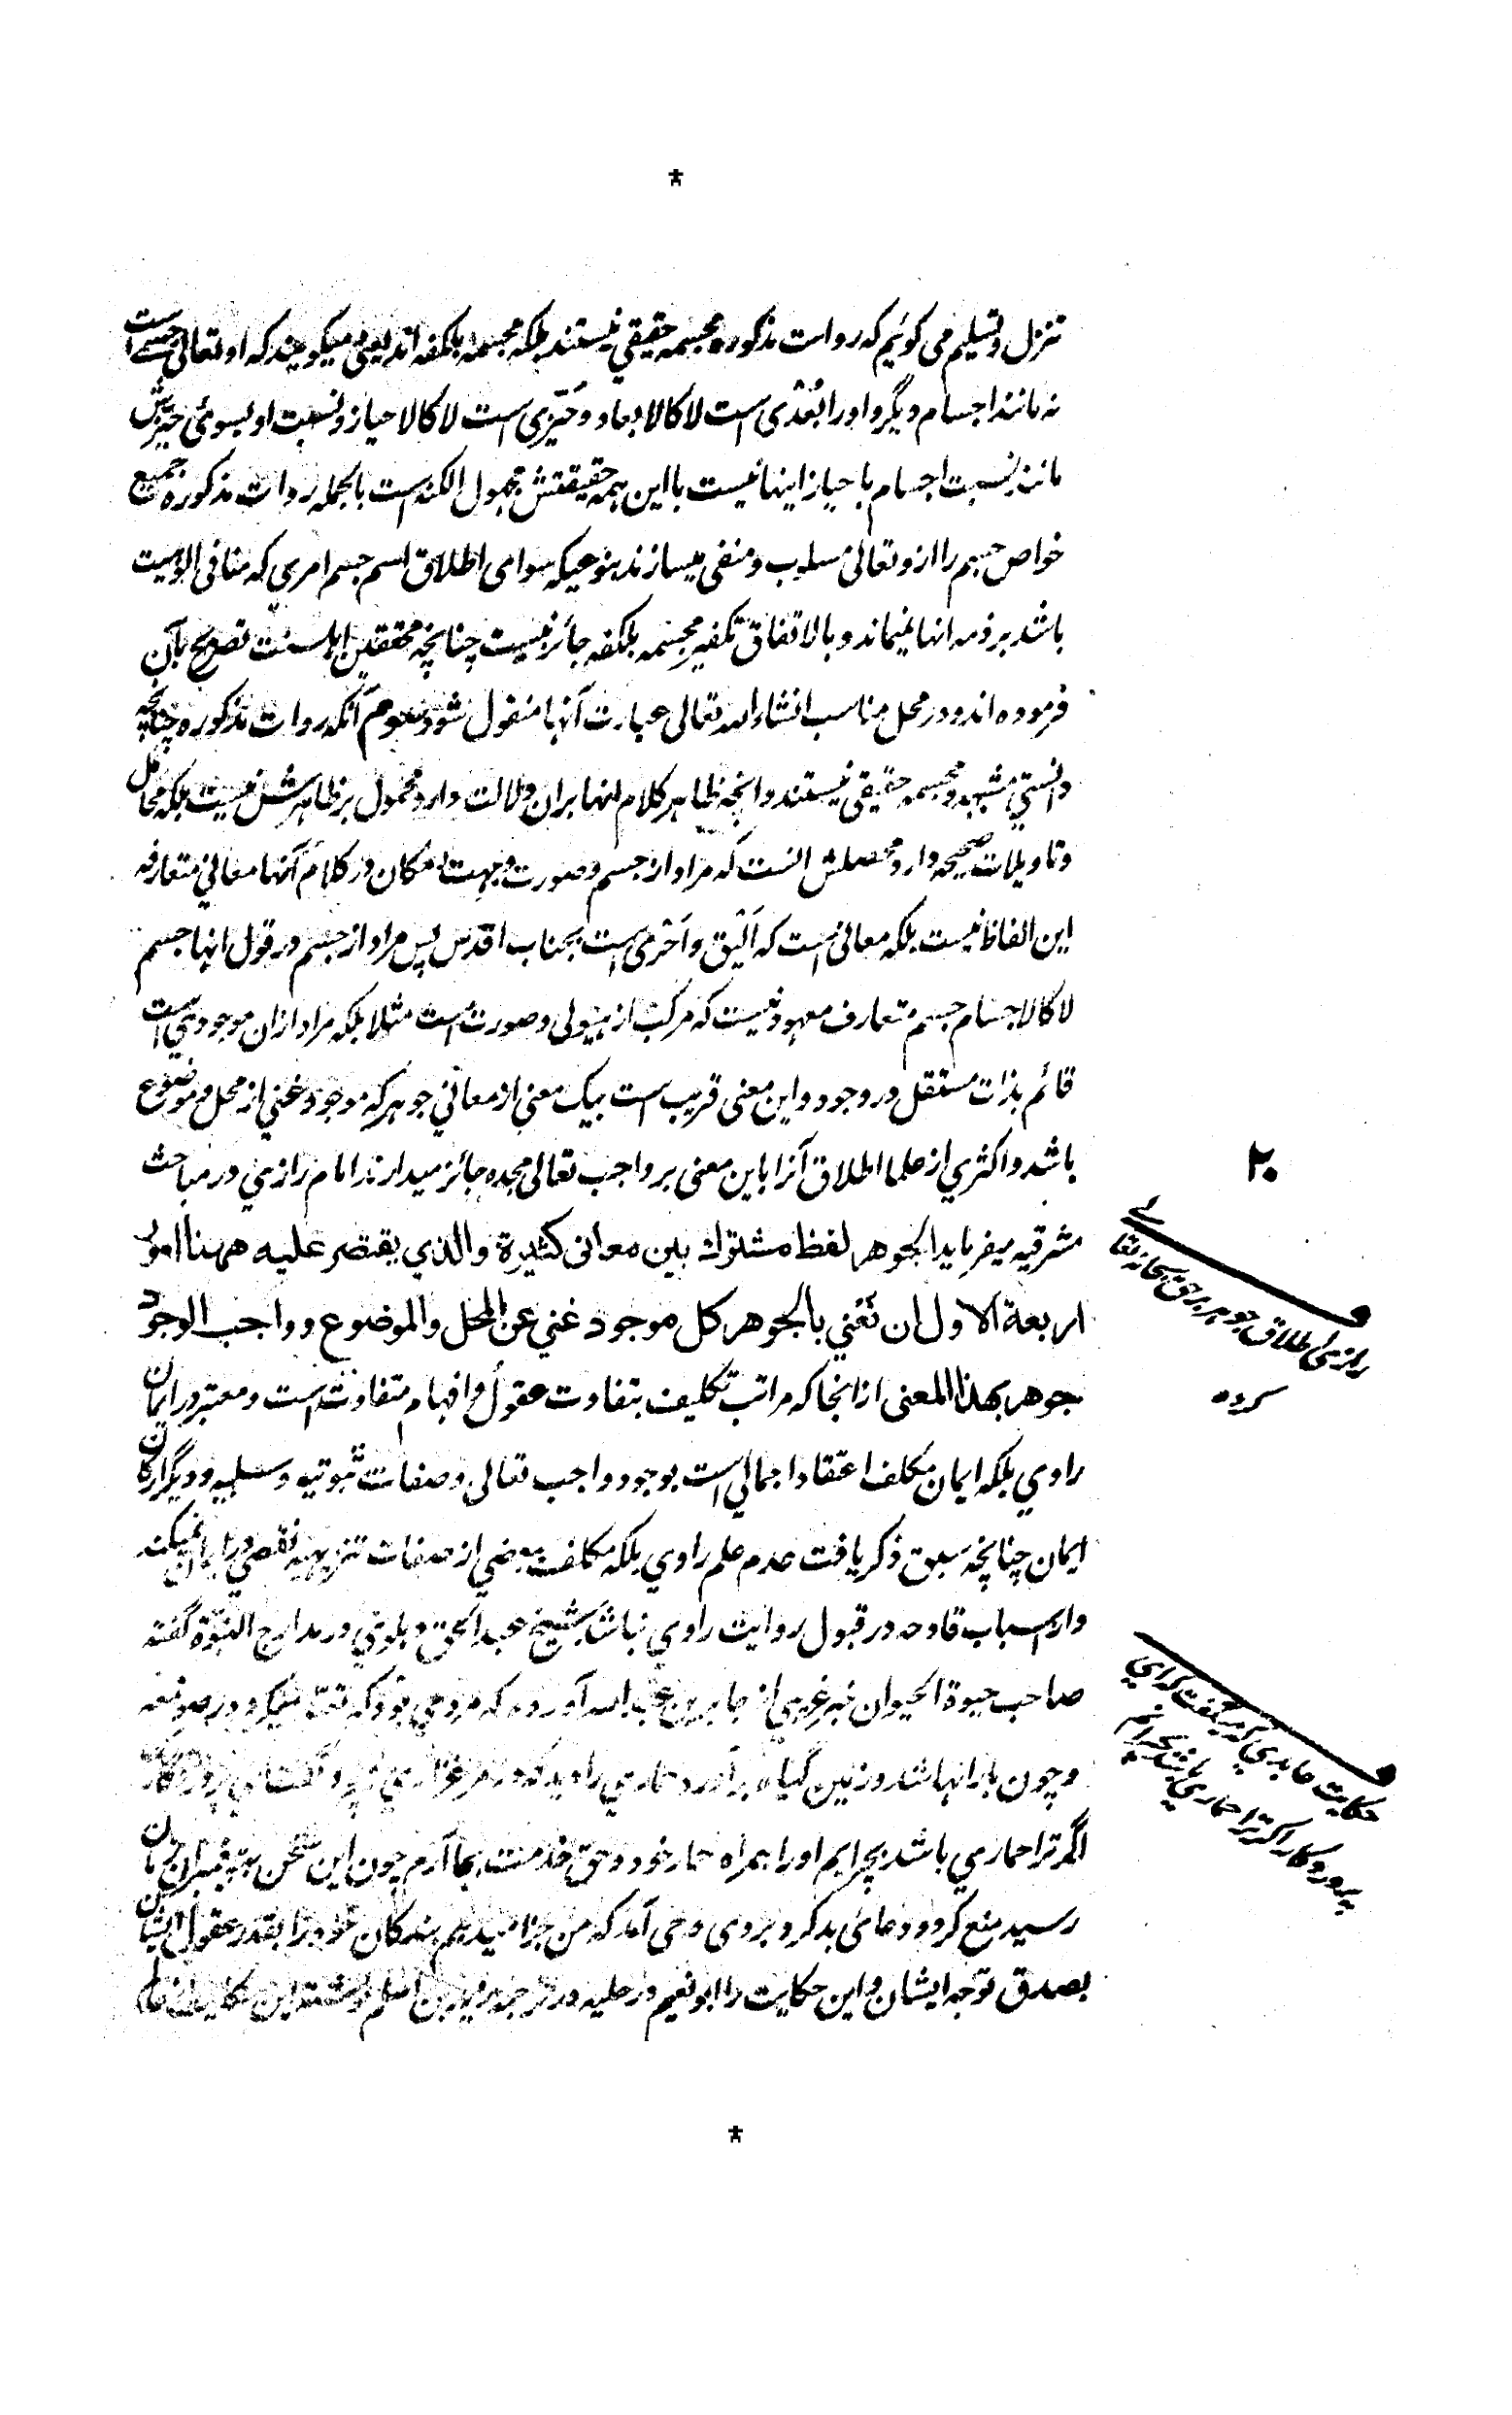 *
تنزل و تسلیم می گوئیم که روات مذکوره مجسمه حقیقی نیستند بلکه مجسمه بلکفه اند یعنی میگویند که او تعالی جسمی است
نه مانند اجسام دیگر و اورا بُعْدی است لا کالابعاد و حَیِّزی است لا کالاحیاز و نسبت او بسوئی حیّزش
مانند نسبت اجسام باحیاز اینها نیست با این همه حقیقتش مجهول الکنه است بالجمله روات مذکوره جمیع
خواص جسم را از و تعالی مسلوب و منفی میسازند بنوعیکه سوای اطلاق اسم جسم امری که منافی الوهیت
باشد بر ذمه انها نمیماند و بالاتفاق تکفیر مجسمه بلکفه جائز نیست چنانچه محققین اهلسنت تصریح بآن
فرموده اند و در محل مناسب انشاء الله تعالی عبارت آنها منقول شود سوم آنکه روات مذکوره چنانچه
دانستی مشبهه و مجسمه حقیقی نیستند و انچه ظاهر کلام انها بران دلالت دارد محمول بر ظاهرش نیست بلکه محامل
و تاویلات صحیحه دارد و محصلش انست که مراد از جسم و صورت و جهت و مکان در کلام آنها معانی متعارفه
این الفاظ نیست بلکه معانی است که اَلْیَق و اَحْری است بجناب اقدس پس مراد از جسم در قول انها جسم
لا کالاجسام جسم متعارف معهود نیست که مرکب از هیولی و صورت است مثلا بلکه مراد ازان موجودی است
قائم بذات مستقل در وجود و این معنی قریب است بیک معنی از معانی جوهر که موجود غنی از محل و موضوع
باشد و اکثری از علما اطلاق آنرا باین معنی بر واجب تعالی مجده جائز میدارند امام رازی در مباحث
مشرقیه میفرماید الجوهر لفظ مشترك بین معانی کثیرة والذي یقتصر علیه ههنا امور
اربعة الاول ان نَعْنِي بالجوهر کل موجود غني عن المحل والموضوع و واجب الوجود
جوهر بهذا المعنی ازانجا که مراتب تکلیف بتفاوت عقول و افهام متفاوت است و معتبر در ایمان
راوی بلکه ایمان مکلف اعتقاد اجمالی است بوجود واجب تعالی و صفات ثبوتیه و سلبیه و دیگر ارکان
ایمان چنانچه سبق ذکر یافت عدم علم راوی بلکه مکلف ببعضی از صفات تنزیهیه نقصی در ایمان نمیکند
و از اسباب قادحه در قبول روایت راوی نباشد شیخ عبد الحق دهلوی در مدارج النبوّة گفته
صاحب حیوة الحیوان خبر غریبی از جابر بن عبد الله آورده که مردی بود که تعبّد میکرد در صومعه
و چون بارانها شد و زمین گیاه برآورد حماری را دید که در مرغزاری میچرد گفت ای پروردگار
اگر ترا حماری باشد بچرایم اورا همراه حمار خود و حق خدمت بجا آرم چون این سخن به پیغمبر ان زمان
رسید منع کرد و دعائی بد کرد بر وی وحی آمد که من جزا میدهم بندگان خود را بقدر عقول ایشان
بصدق توجه ایشان و این حکایت را ابو نعیم در حلیه در ترجمه زید بن اسلم نوشته این
۲۰
رازی اطلاق جوهر بر حق سبحانه تعالے
کرده
حکایت عابدی که میگفت که ای
پروردگار اگر ترا حماری باشد بچرانم
*